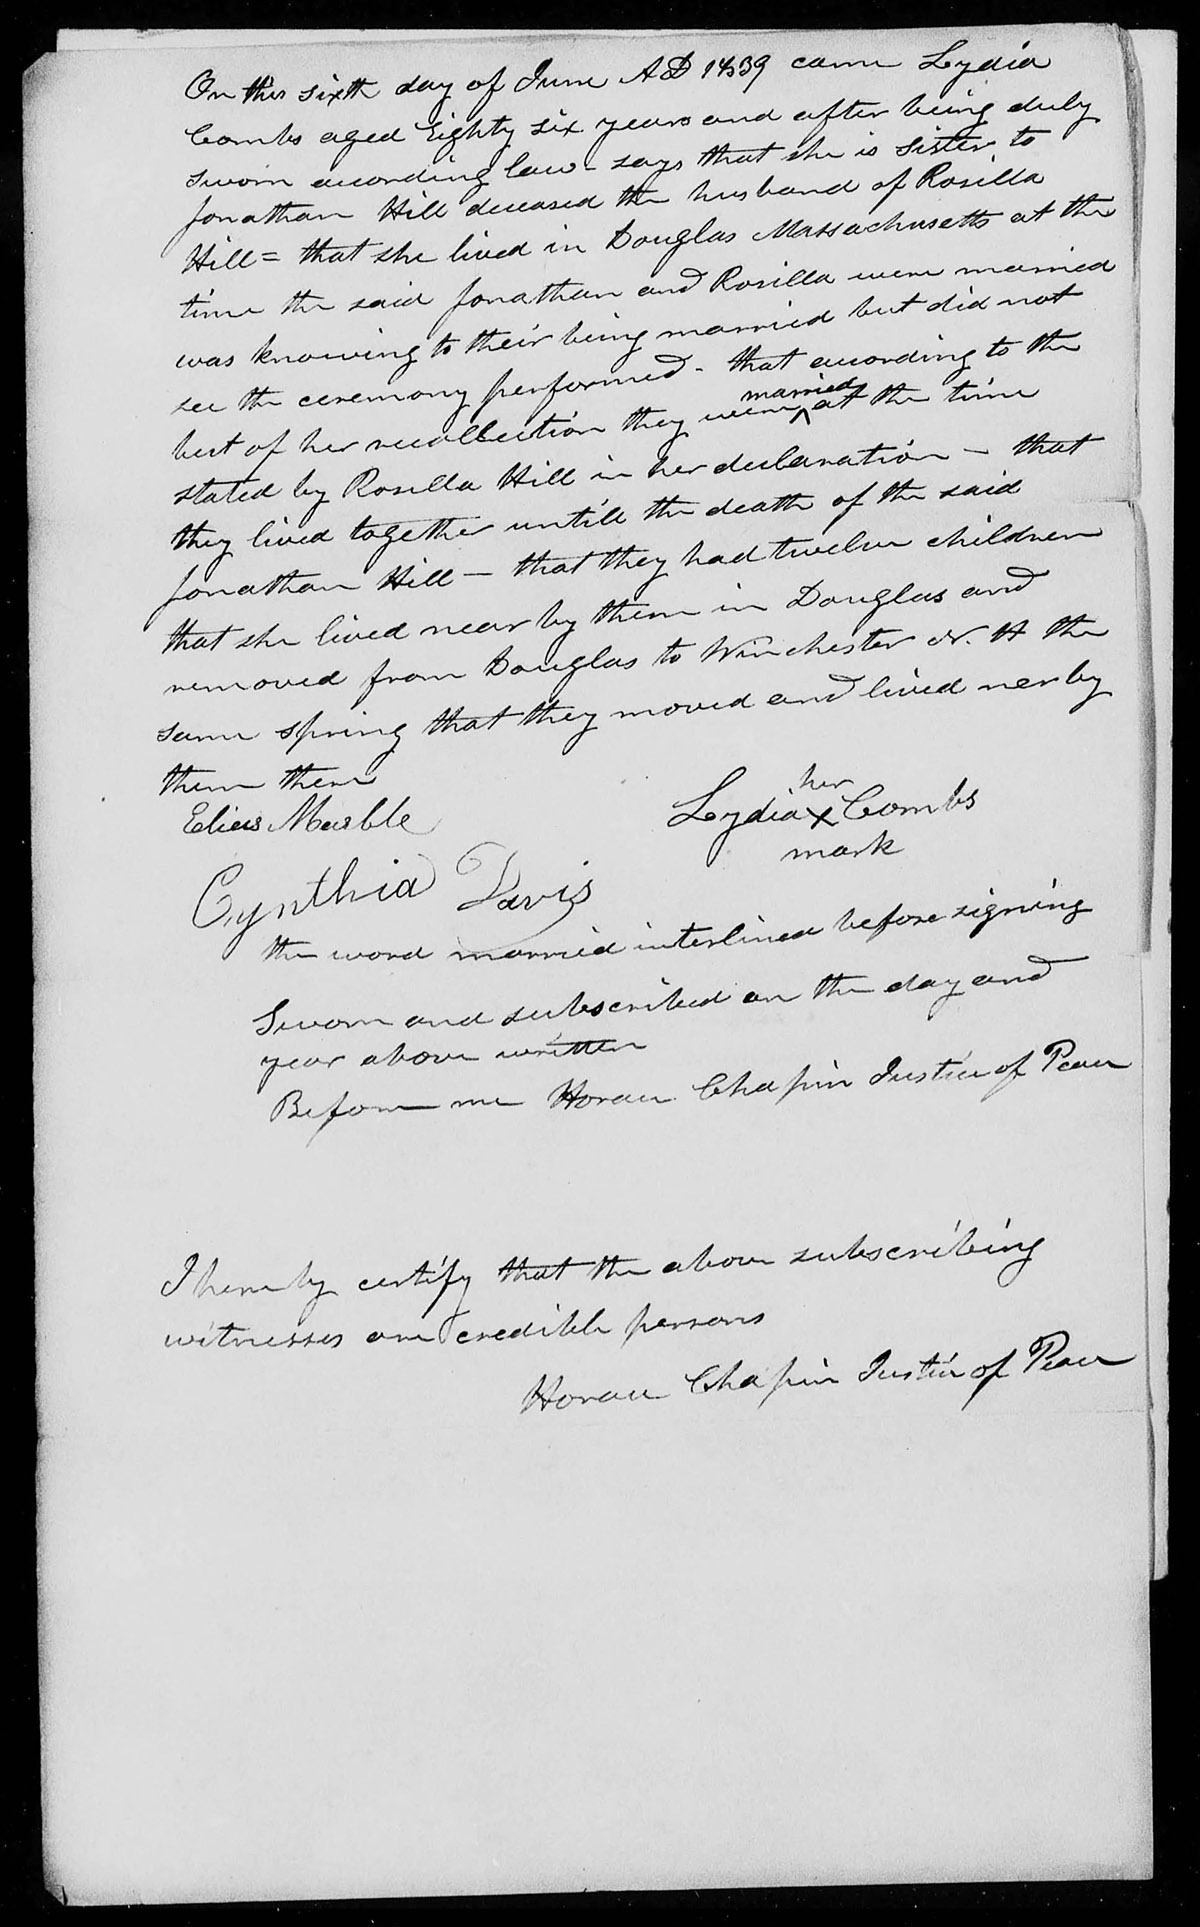 On this sixth day of June AD 1839 came Lydia
Combs aged Eighty six years and after being duly
sworn according law - says that she is sister to
Jonathan Hill deceased the husband of Rosilla
Hill = that she lived in Douglas Massachusetts at the
time the said Jonathan and Rosilla were married
was knowing to their being married but did not
see the ceremony performed - that according to the
best of her recollection they were married at the time
stated by Rosilla Hill in her declaration - that
they lived together untill the death of the said
Jonathan Hill - that they had twelve children
that she lived near by them in Douglas and
removed from Douglas to Winchester N. H the
same spring that they moved and lived near by
them there
Elias Marble
Lydia her X mark Combs
Cynthia Davis
the word married interlined before signing
Sworn and subscribed on the day and
year above written
Before me Horace Chapin Justice of Peace
I hereby certify that the above subscribing
witnesses are credible persons
Horace Chapin Justice of Peace